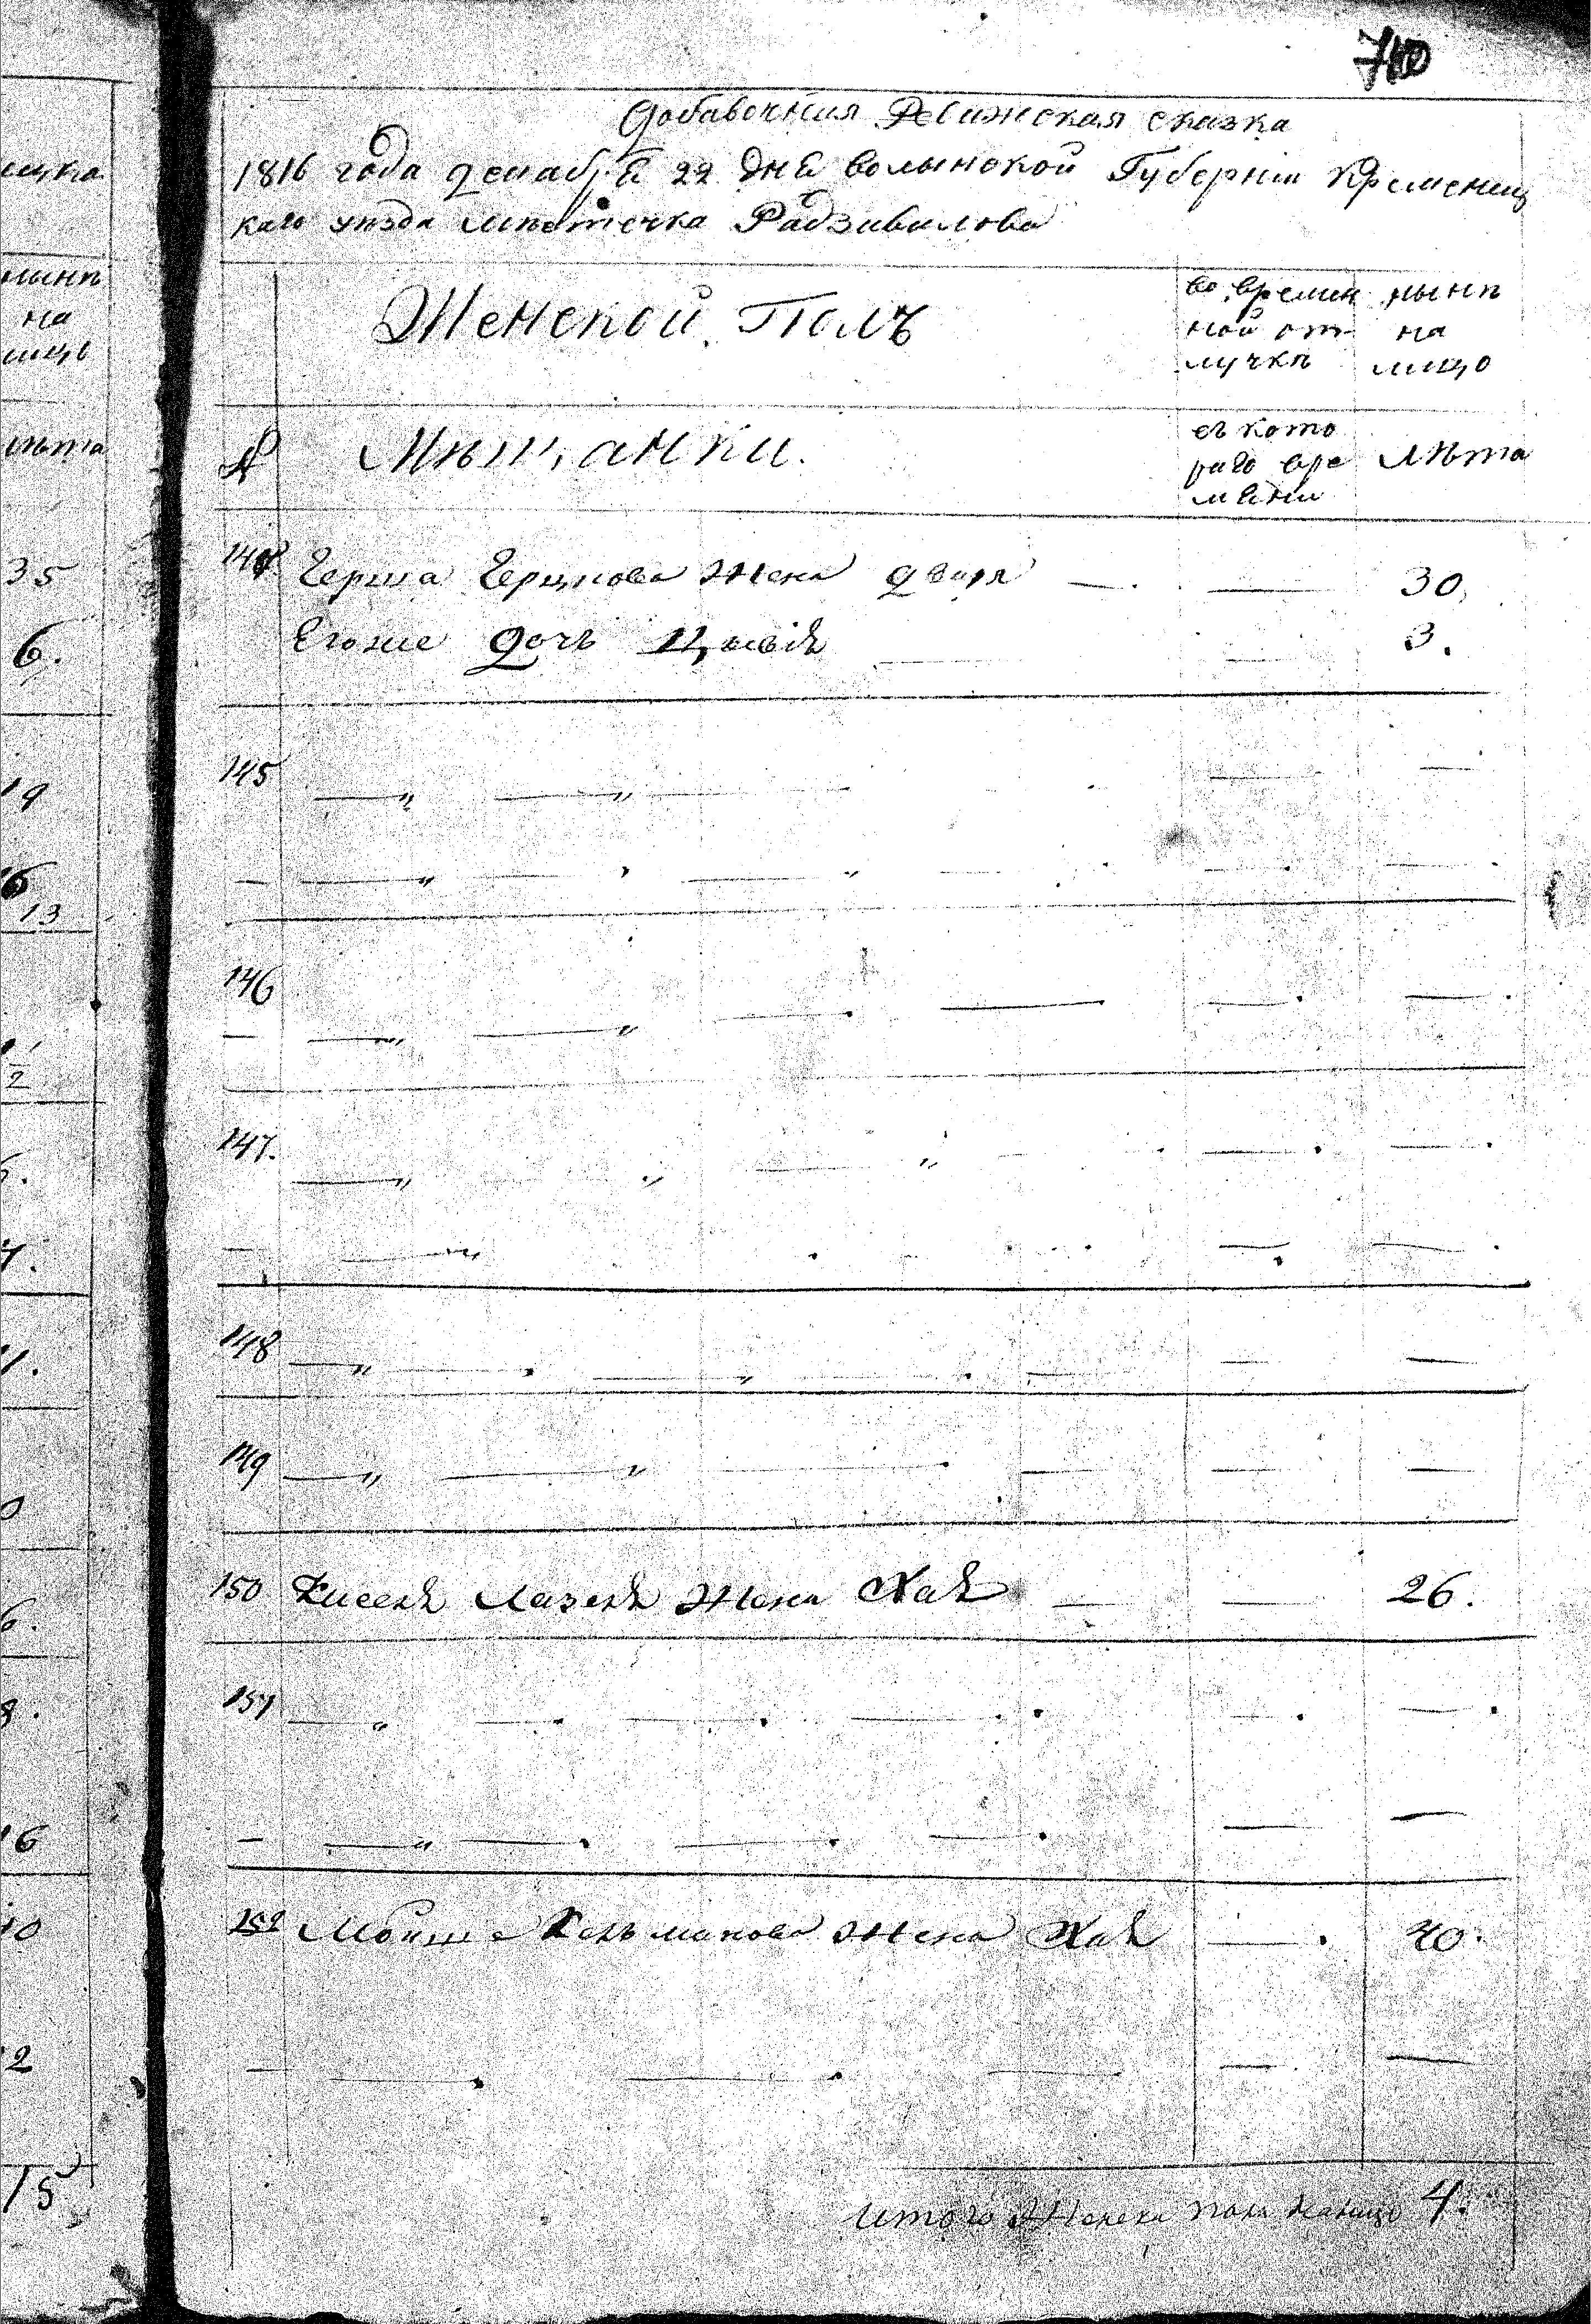 710
Добавочная Ревижская сказка
1816 года декабря 22 дня волынской Губернии Кременец
каго уезда местечка Радзивилова
Женской Полъ
во времян
ной от
лучкѣ
нынѣ
на
лицо
№ Мѣщанки.
съ кото
раго вре
мени
Лѣта
144 Герша Герцкова жена двоя — — 30
Егоже дочь Цивія — — 3.
145
146
147.
148
149
150 жена Хая — — 26.
151
152 Мойше Кельманова жена Хая — 40.
итого Женска пола налицо 4.
нынѣ
на
лицо
лѣта
35
6.
19
16
13
1/2
7.
16
10
2
15